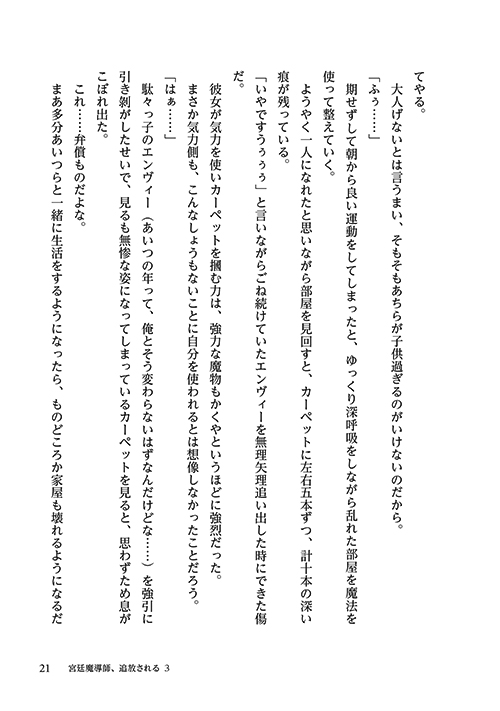 てやる。
大人げないとは言うまい、そもそもあちらが子供過ぎるのがいけないのだから。
「ふぅ……」
期せずして朝から良い運動をしてしまったと、ゆっくり深呼吸をしながら乱れた部屋を魔法を
使って整えていく。
ようやく一人になれたと思いながら部屋を見回すと、カーペットに左右五本ずつ、計十本の深い
痕が残っている。
「いやですうぅぅぅ」と言いながらごね続けていたエンヴィーを無理矢理追い出した時にできた傷
だ。
彼女が気力を使いカーペットを摑む力は、強力な魔物もかくやというほどに強烈だった。
まさか気力側も、こんなしょうもないことに自分を使われるとは想像しなかったことだろう。
「はぁ……」
駄々っ子のエンヴィー（あいつの年って、俺とそう変わらないはずなんだけどな……）を強引に
引き剝がしたせいで、見るも無惨な姿になってしまっているカーペットを見ると、思わずため息が
こぼれ出た。
これ……弁償ものだよな。
まあ多分あいつらと一緒に生活をするようになったら、ものどころか家屋も壊れるようになるだ
21 宮廷魔導師、追放される 3